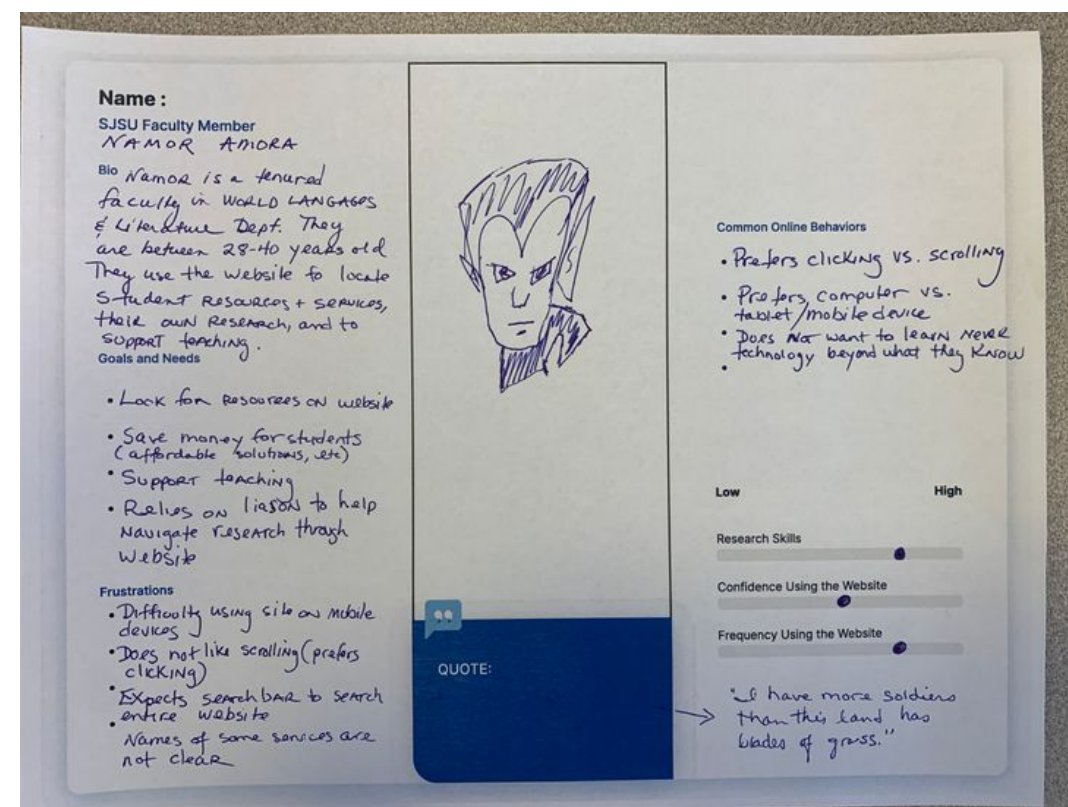 Name :
SJSU Faculty Member
NAMOR AMORA
Bio Namor is a tenured
faculty in WORLD LANGAGES
& Literature Dept. They
are between 28-40 years old
They use the website to locate
Student Resources + services,
their own Research, and to
support teaching.
Goals and Needs
• Look for resources on website
• Save money for students
(affordable solutions, etc)
• Support teaching
• Relies on liason to help
Navigate research through
Website
Frustrations
• Difficulty using site on mobile
devices
• Does not like scrolling (prefers
clicking)
• Expects search bar to search
entire website
• Names of some services are
not clear
QUOTE:
Common Online Behaviors
• Prefers clicking vs. scrolling
• Prefers computer vs.
tablet/mobile device
• Does not want to learn newer
technology beyond what they know
•
Low High
Research Skills
Confidence Using the Website
Frequency Using the Website
"I have more soldiers
than this land has
blades of grass."